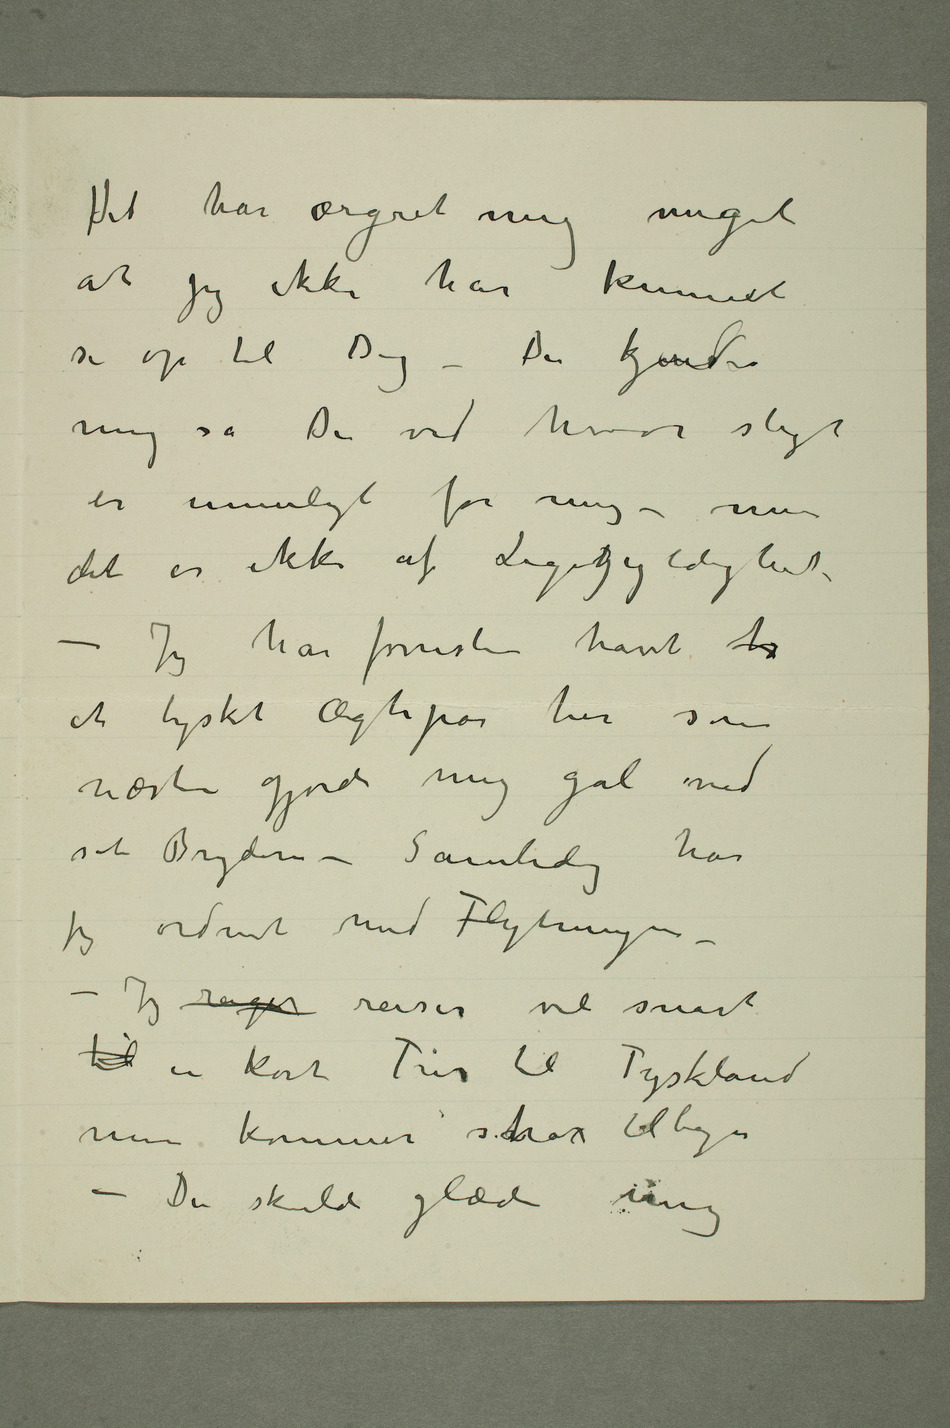 Det har ærgret mig meget
at jeg ikke har kunnet
se op til Dig – Du kjender
mig så Du ved hvor sligt
er umuligt for mig – men
det er ikke af Ligegyldighed.
– Jeg har forresten havt to
et tyskt Ægtepar her som
næsten gjorde mig gal med
sit Bryderi – Samtidig har
jeg ordnet med Flytningen –
– Jeg rager reiser vel snart
til en kort Trip til Tyskland
men kommer strax tilbage
– Du skulde glæde mig